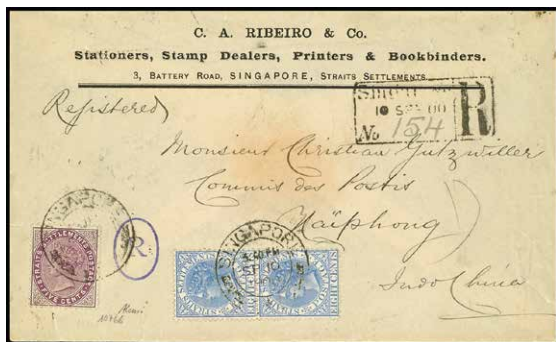 C. A. RIBEIRO & Co.
Stationers, Stamp Dealers, Printers & Bookbinders.
3, BATTERY ROAD, SINGAPORE, STRAITS SETTLEMENTS
Registered
10 SEP 00
R
No 154
Monsieur Christian Gutzwiller
Commis des Postes
Haïphong
Indo China
SINGAPORE
R
STRAITS SETTLEMENTS
FIVE CENTS
SINGAPORE
EIGHT CENTS